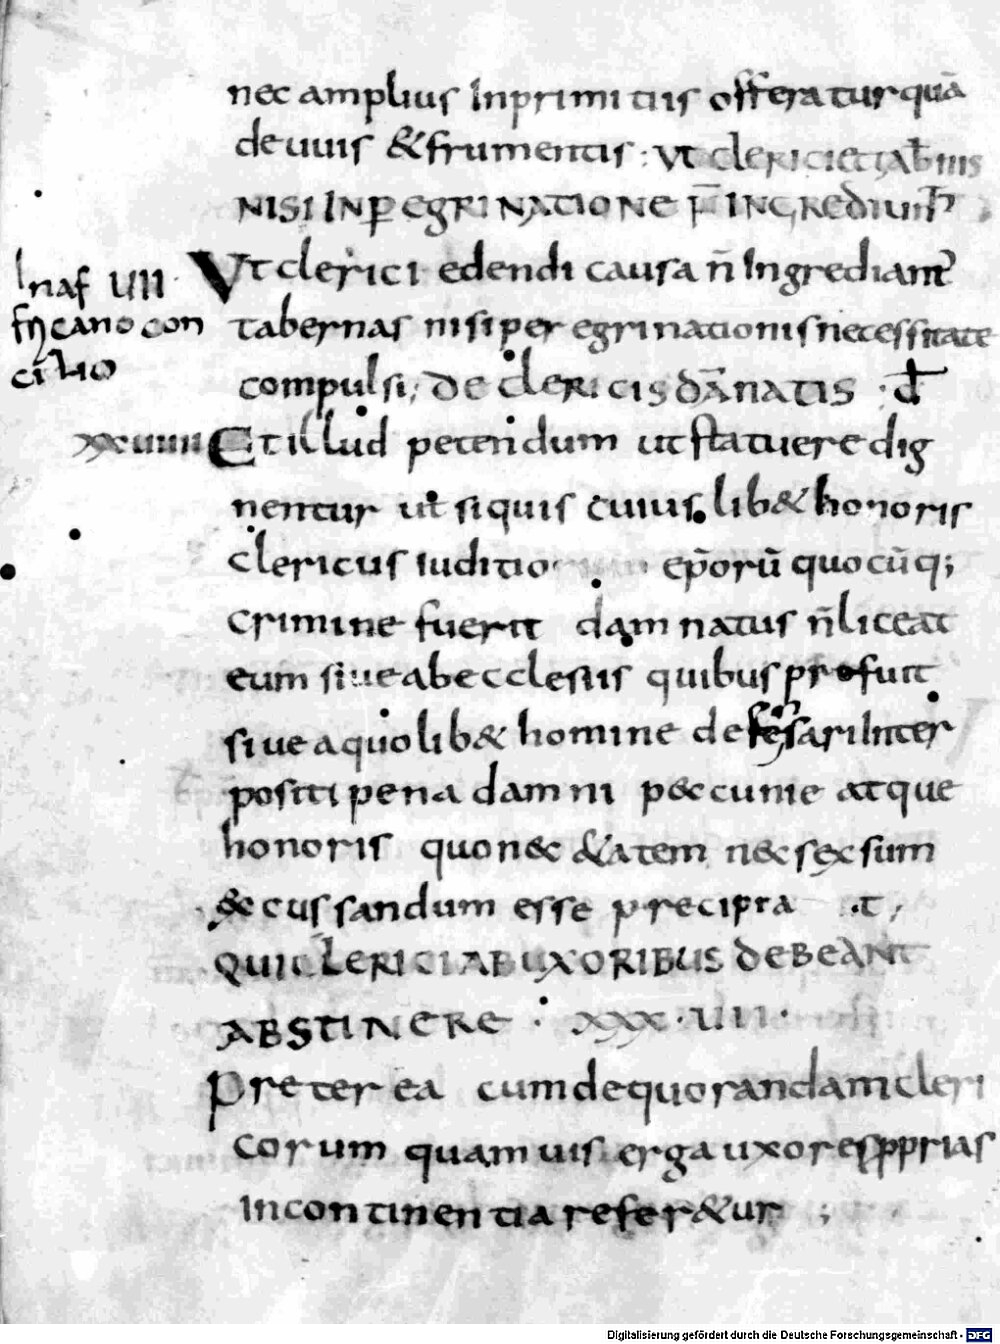 nec amplius Inprimitiis offeratur quā
de uuis & frumentis : Ut clerici et tab̄nis
NISI IN PEREGRINATIONE n̄ INGREDIUNT̄
Ut clerici edendi causa n̄ Ingrediant̄
Inaf UII
tabernas nisi peregrinationis necessitate
fricano con
cilio
compulsi; De CLERICIS DĀNATIS . d̄
xxuiiii Et illud petendum ut statuere dig
nentur ut si quis cuius lib& honoris
clericus iuditio ep̄orū quocūq;
crimine fuerit damnatus n̄ liceat
eum siue ab ecclesiis quibus prefuit
siue a quo lib& homine defensari Inter
positi pena damni peccunie atque
honoris quo nec &atem nec sexsum
&cussandum esse precipia .t,
QUI CLERICI AB UXORIBUS DEBEANT
ABSTINERE . xxx.uii.
Preter ea cum de quorandam cleri
corum quamuis erga uxores pprias
Incontinentia refer&ur ;
Digitalisierung gefördert durch die Deutsche Forschungsgemeinschaft - DFG